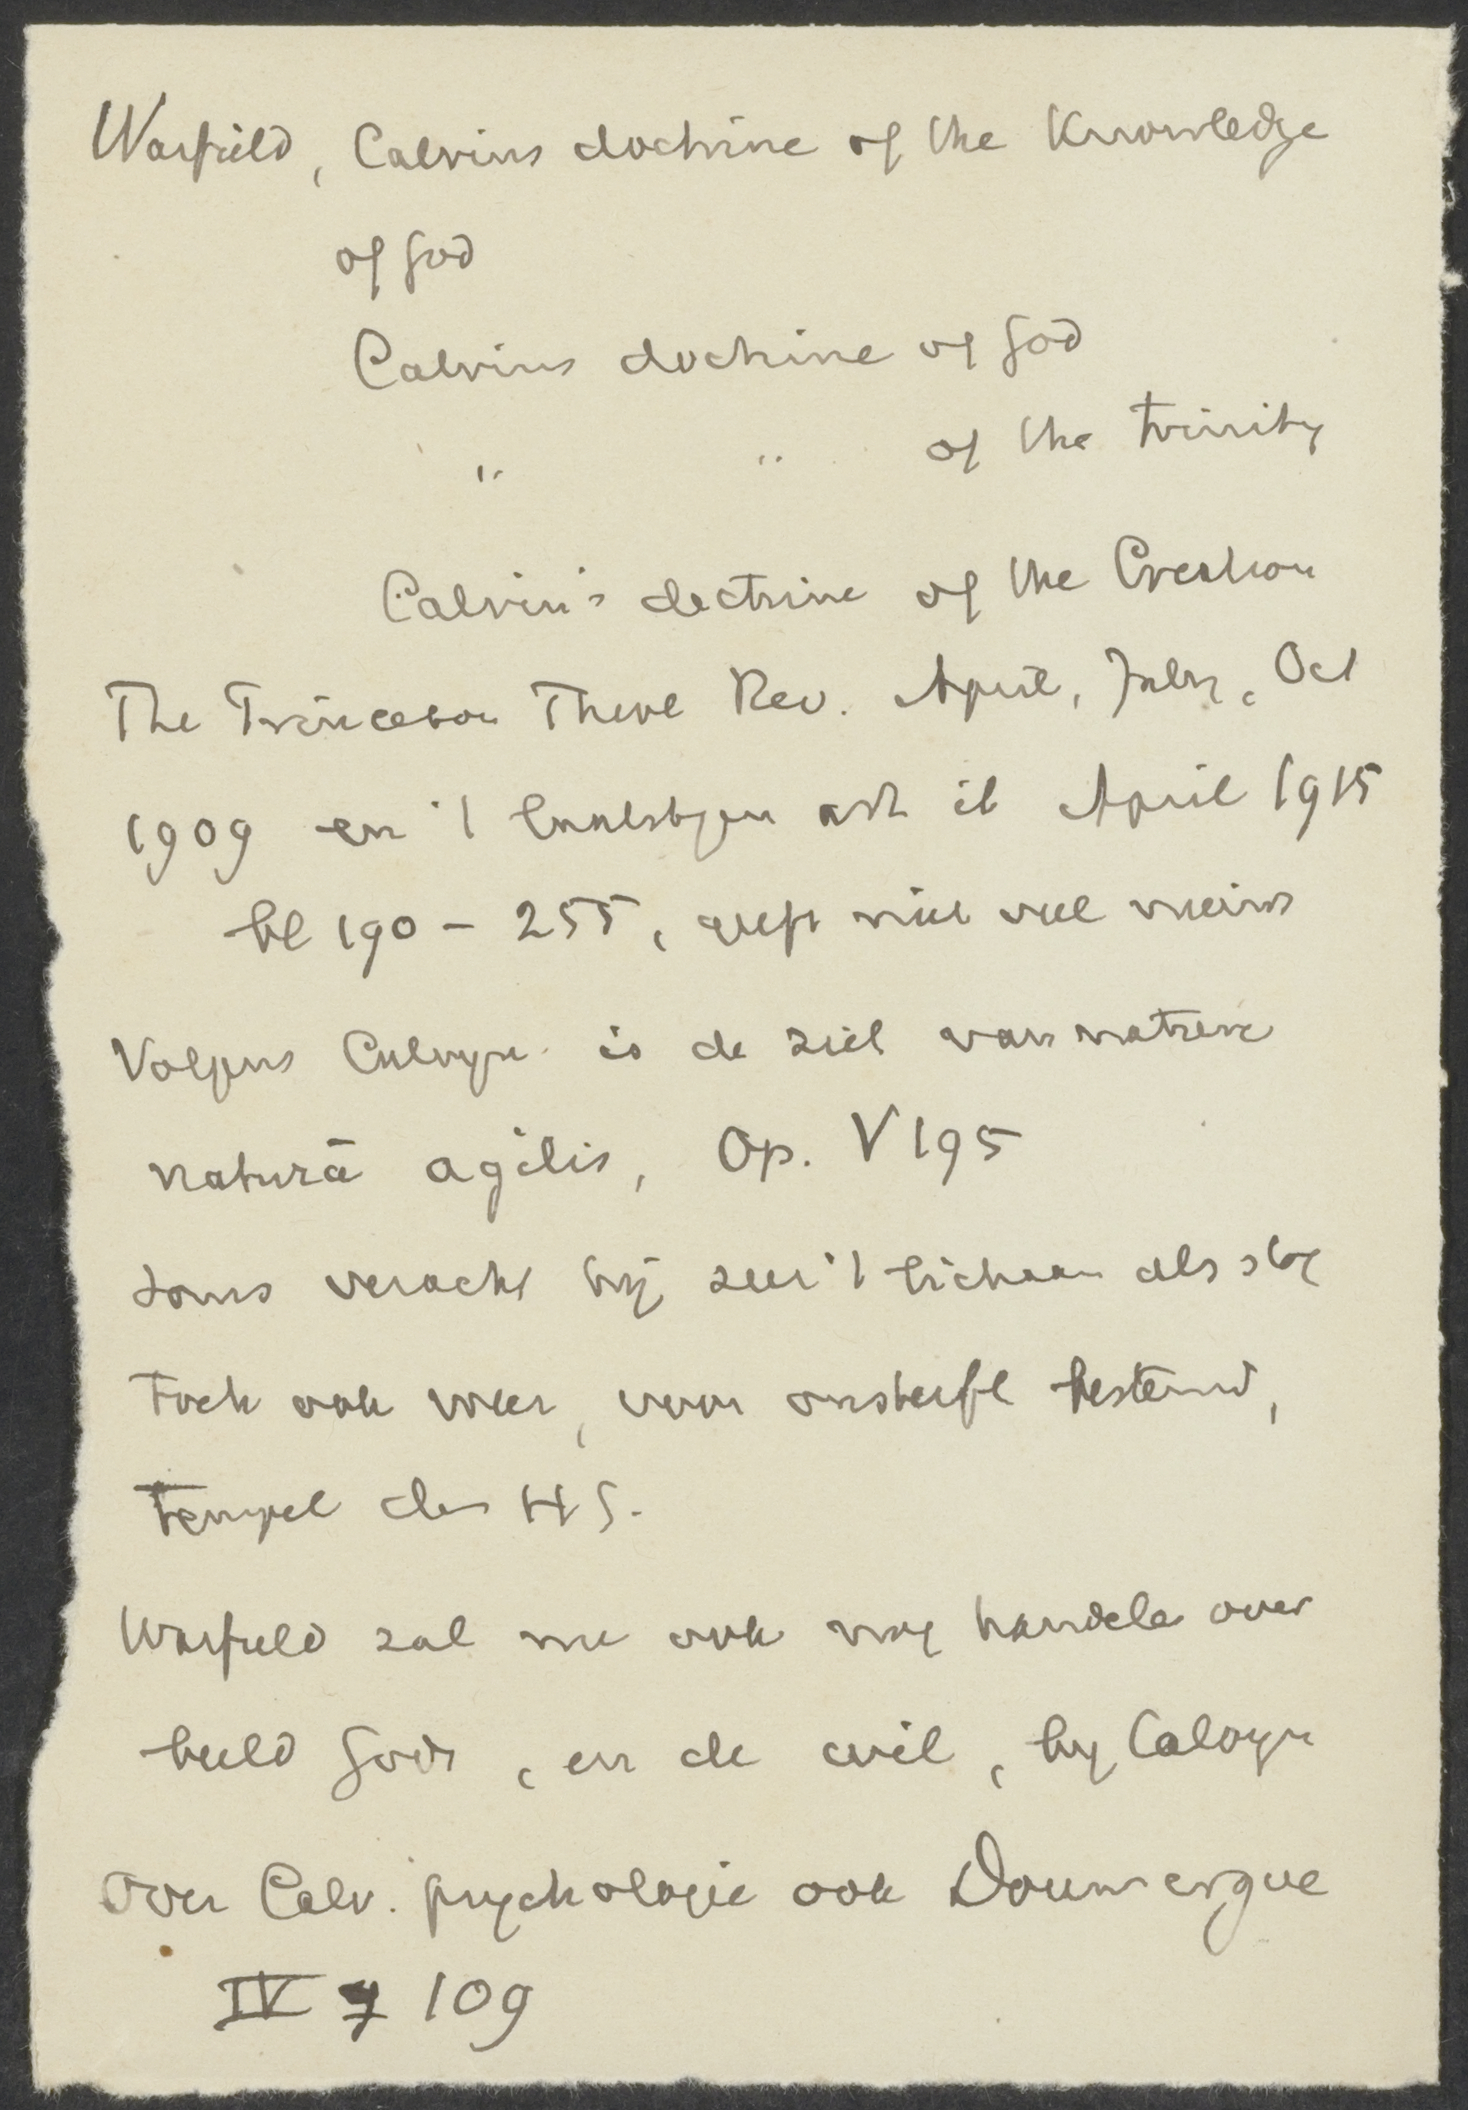 Warfield, Calvins doctrine of the Knowledge
of God
Calvins doctrine of God
" " of the trinity
Calvin's doctrine of the Creation
The Princeton Theol Rev. April, July, Oct
1909 en 't laatstgen art it April 1915
bl 190 - 255, geeft niet veel nieuws
Volgens Calvyn is de ziel van nature
naturā agilis, Op. V 195
soms veracht hij zeer 't lichaam als
Toch ook weer, voor onsterfl bestemd,
tempel des HS.
Warfield zal nu ook nog handelen over
beeld Gods, en de wil, by Calvyn
Over Calv. psychologie ook Doumergue
IV 109